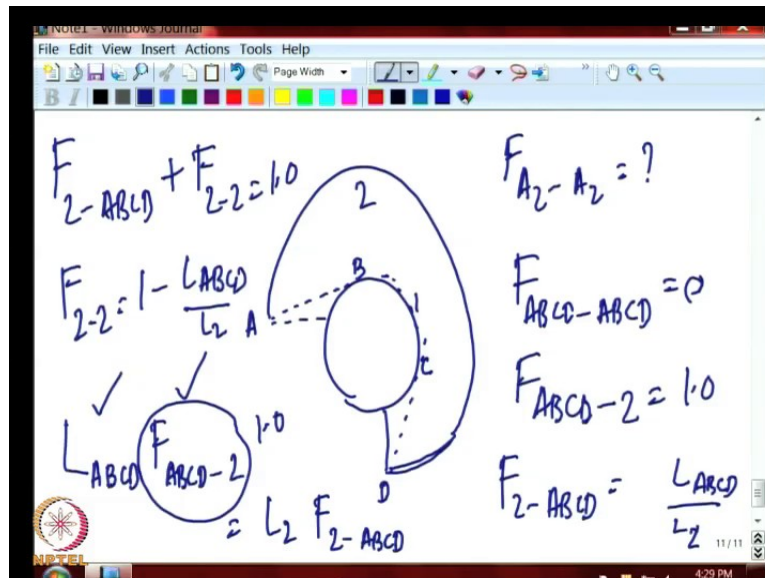 Note1 - Windows Journal
File Edit View Insert Actions Tools Help
Page Width
B I
F 2-ABCD + F 2-2 = 1.0
F 2-2 = 1 - L ABCD / L2
L ABCD F ABCD-2 1.0
= L2 F 2-ABCD
2
A
B
1
C
D
F A2-A2 = ?
F ABCD-ABCD = 0
F ABCD-2 = 1.0
F 2-ABCD = L ABCD / L2
11/11
NPTEL
4:29 PM